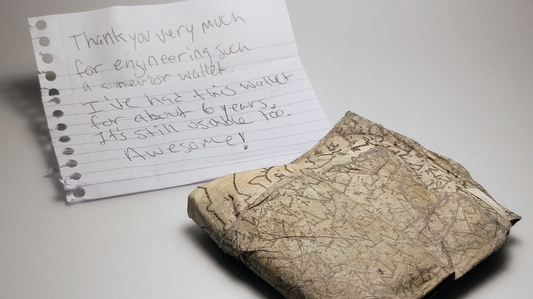 Thank you very much
for engineering such
a superior wallet
I've had this wallet
for about 6 years.
It's still usable too.
Awesome!